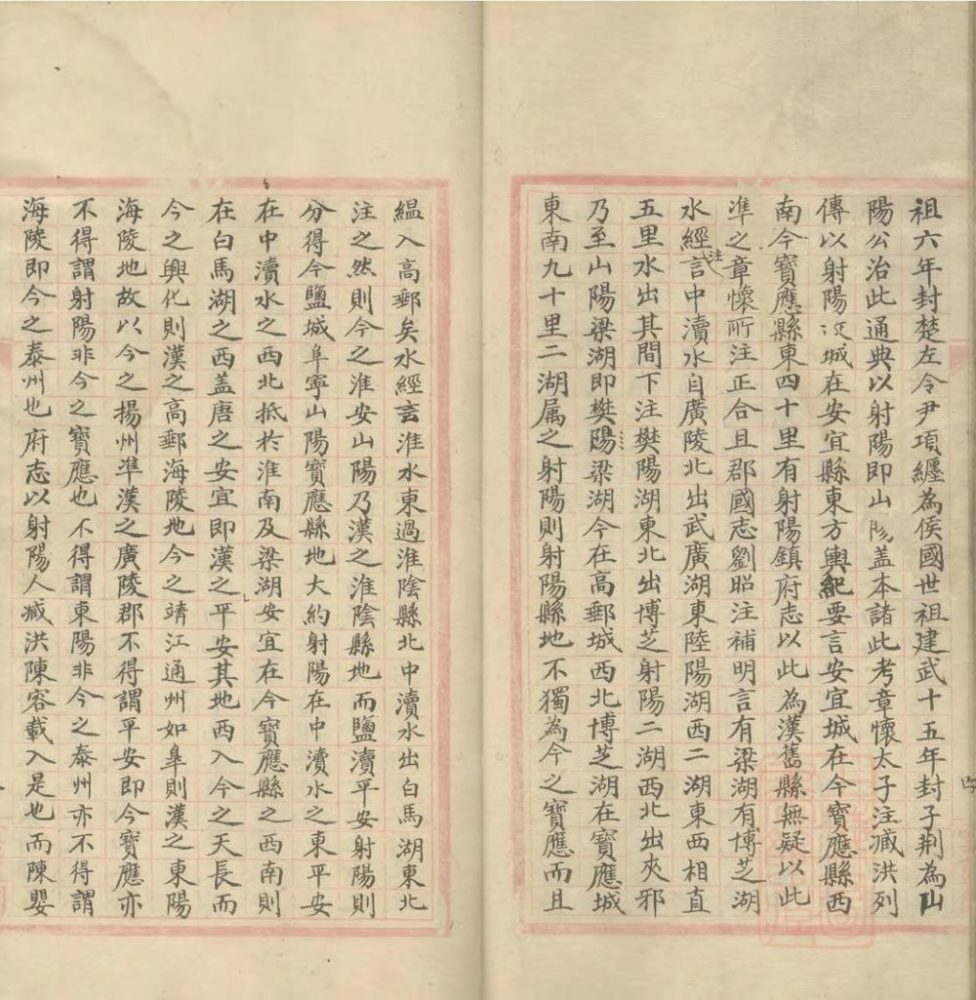 祖六年封楚左令尹項纏為侯國世祖建武十五年封子荆為山
陽公治此通典以射陽即山陽蓋本諸此考章懷太子注臧洪列
傳以射陽故城在安宜縣東方輿紀要言安宜城在今寶應縣西
南今寶應縣東四十里有射陽鎮府志以此為漢舊縣無疑以此
準之章懷所注正合且郡國志劉昭注補明言有梁湖有博芝湖
水經注言中瀆水自廣陵北出武廣湖東陸陽湖西二湖東西相直
五里水出其間下注樊陽湖東北出博芝射陽二湖西北出夾邪
乃至山陽梁湖即樊陽梁湖今在高郵城西北博芝湖在寶應城
東南九十里二湖属之射陽則射陽縣地不獨為今之寶應而且
緼入高郵矣水經言淮水東過淮陰縣北中瀆水出白馬湖東北
注之然則今之淮安山陽乃漢之淮陰縣地而鹽瀆平安射陽則
分得今鹽城阜寧山陽寶應縣地大約射陽在中瀆水之東平安
在中瀆水之西北抵於淮南及梁湖安宜在今寶應縣之西南則
在白馬湖之西蓋唐之安宜即漢之平安其地西入今之天長而
今之興化則漢之高郵海陵地今之靖江通州如皋則漢之東陽
海陵地故以今之揚州準漢之廣陵郡不得謂平安即今寶應亦
不得謂射陽非今之寶應也不得謂東陽非今之泰州亦不得謂
海陵即今之泰州也府志以射陽人臧洪陳容載入是也而陳嬰